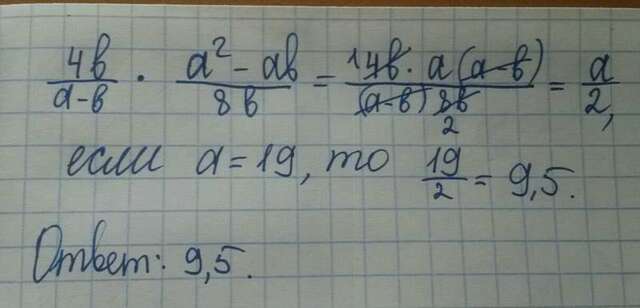 4в/(a-в) · (a² - aв)/8в = (¹4в · a(a-в))/((a-в) 8в₂) = a/2,
если a = 19, то 19/2 = 9,5.
Ответ: 9,5.